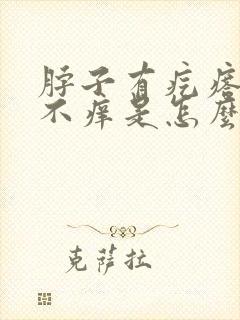 脖子有疙瘩
不痒是怎麼
克薩拉